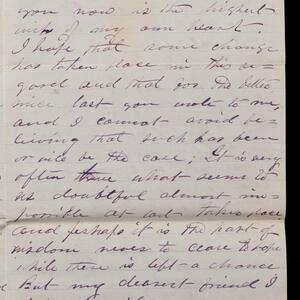 you now is the highest
wish of my own heart.
I hope that some change
has taken place in this re-
gard and that for the better
since last you wrote to me,
and I cannot avoid be-
lieving that such has been
or will be the case; It is very
often there what seems to
us doubtful almost im-
possible at last takes place
and perhaps it is the part of
wisdom never to cease to hope
while there is left a chance
But my dearest friend I